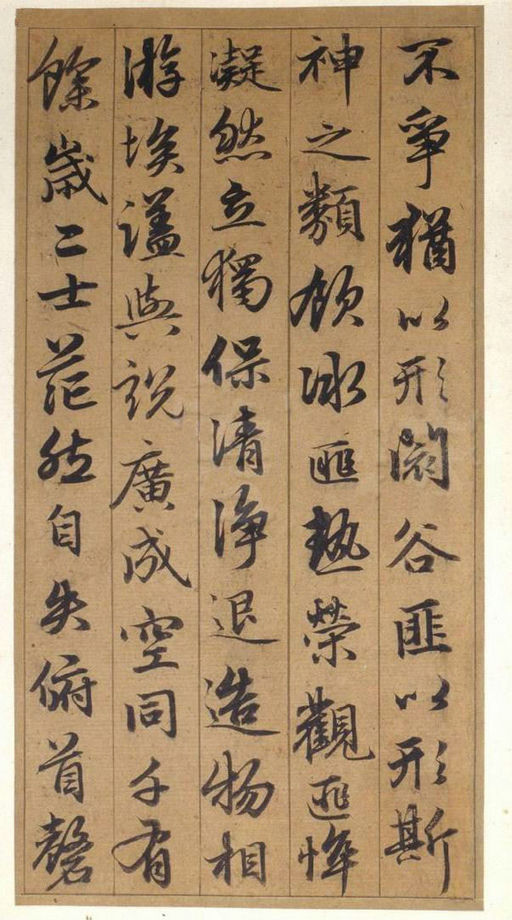 不爭猶以形閟谷匪以形斯
神之類飲冰匪熱榮觀匪
凝然立獨保清淨退造物相
游埃謐與説廣成空同千有
餘歲二士茫然自失俯首磬